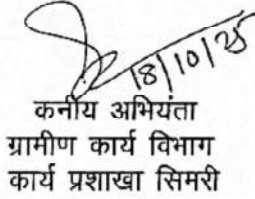 18/10/25
कनीय अभियंता
ग्रामीण कार्य विभाग
कार्य प्रशाखा सिमरी